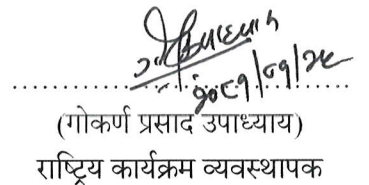 २०८१/०१/२४
(गोकर्ण प्रसाद उपाध्याय)
राष्ट्रिय कार्यक्रम व्यवस्थापक